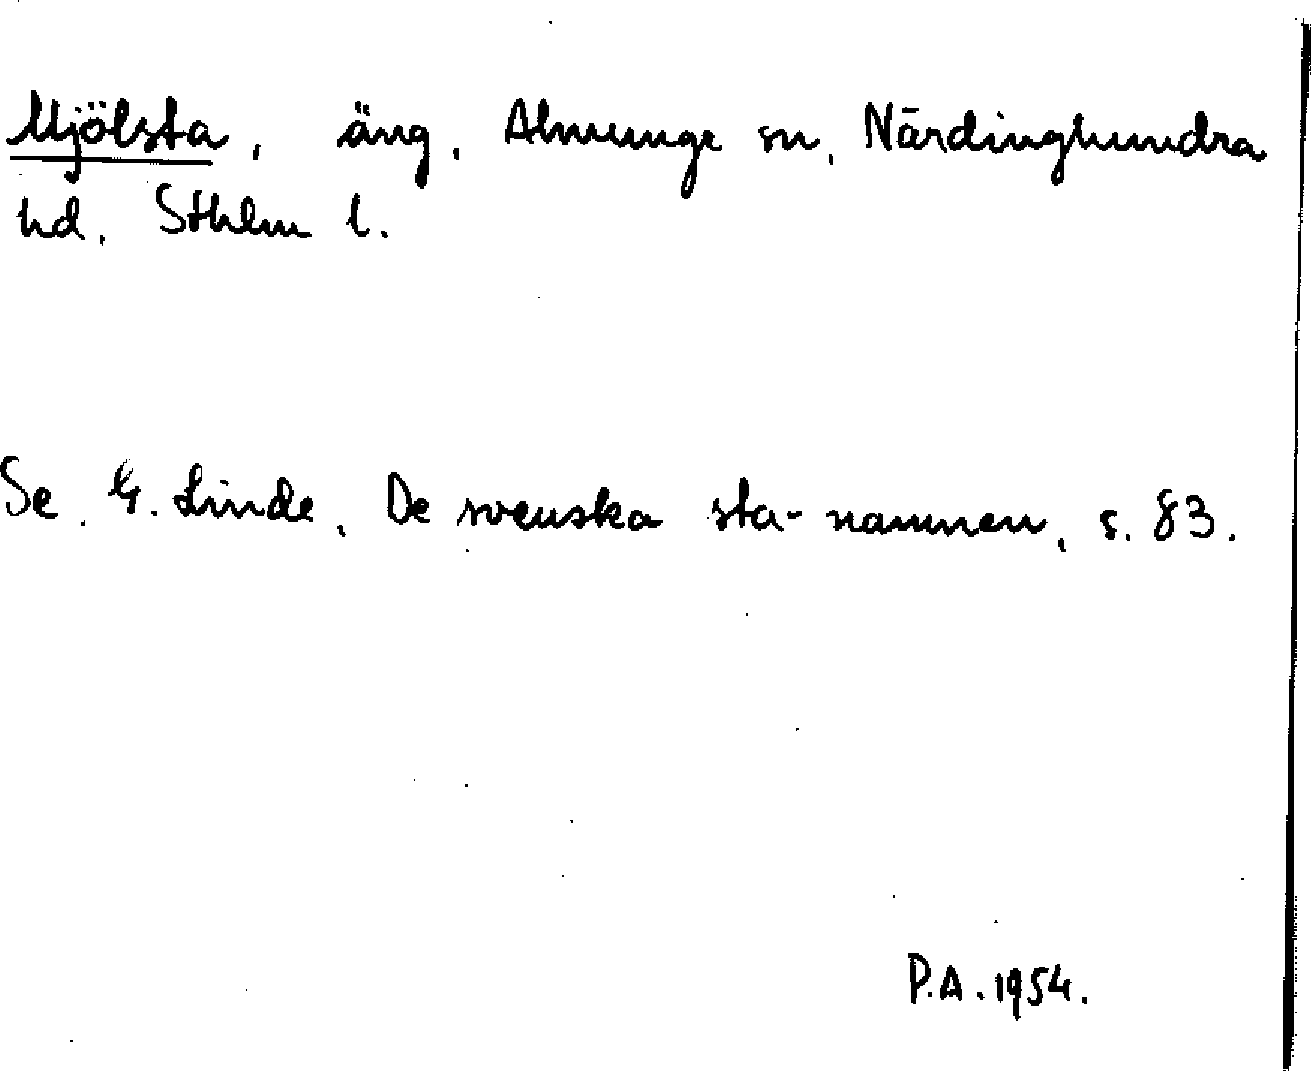 Mjölsta, äng, Almunge sn, Närdinghundra
hd, Sthlm l.
Se, G. Linde, De svenska sta-namnen, s. 83.
P.A. 1954.